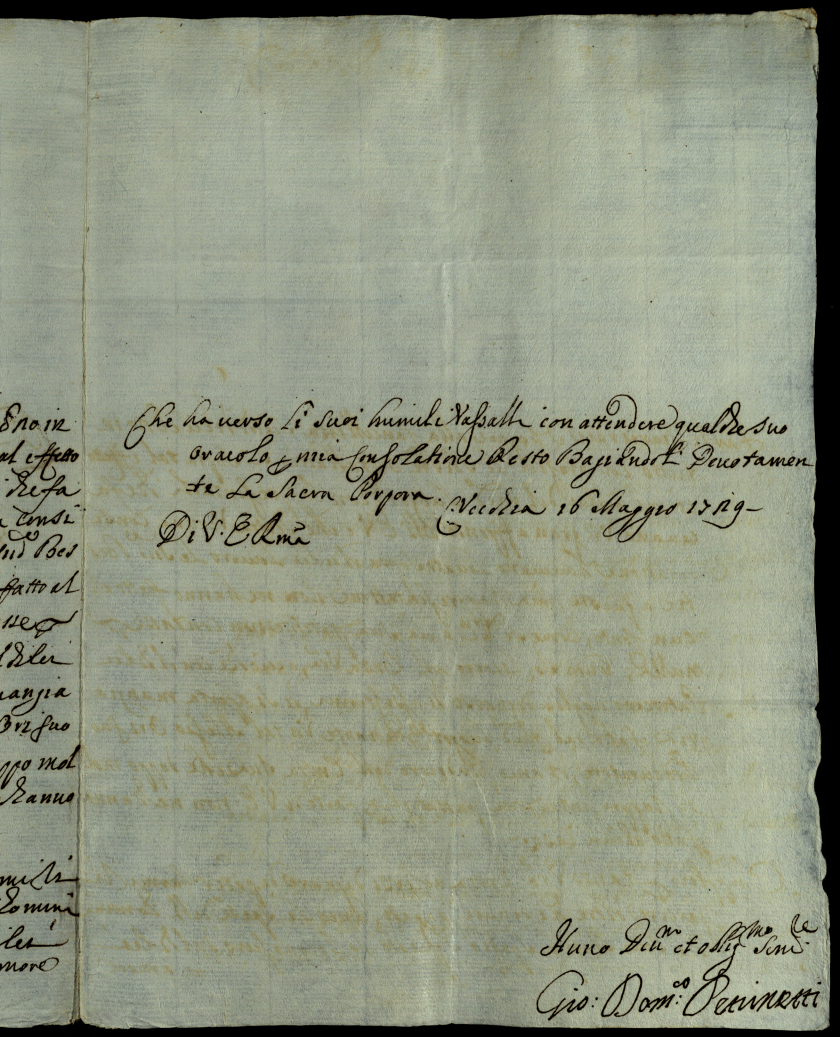 8no in
al effetto
che fa
a consi
Bes
ffatto al
sse
l diler
mangia
3 in suo
ppo mol
hanno
mili
homini
iler
more
Che ha verso li suoi humili Vassalli con attendere qualche suo
oracolo p mia Consolatione Resto Baciandoli Devotamen
te La Sacra Porpora. CVecchia 16 Maggio 1729
Di V. E Rma
Humo Divmo et obligmo Servre
Gio: Domco Pettinetti